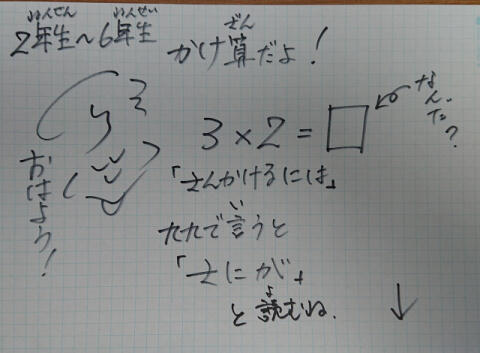 2年生～6年生
ねんせい
ねんせい
かけ算だよ！
ざん
3×2=□
なんだ？
「さんかけるには」
九九で言うと
い
「さにが」
と読むね.
よ
おはよう！